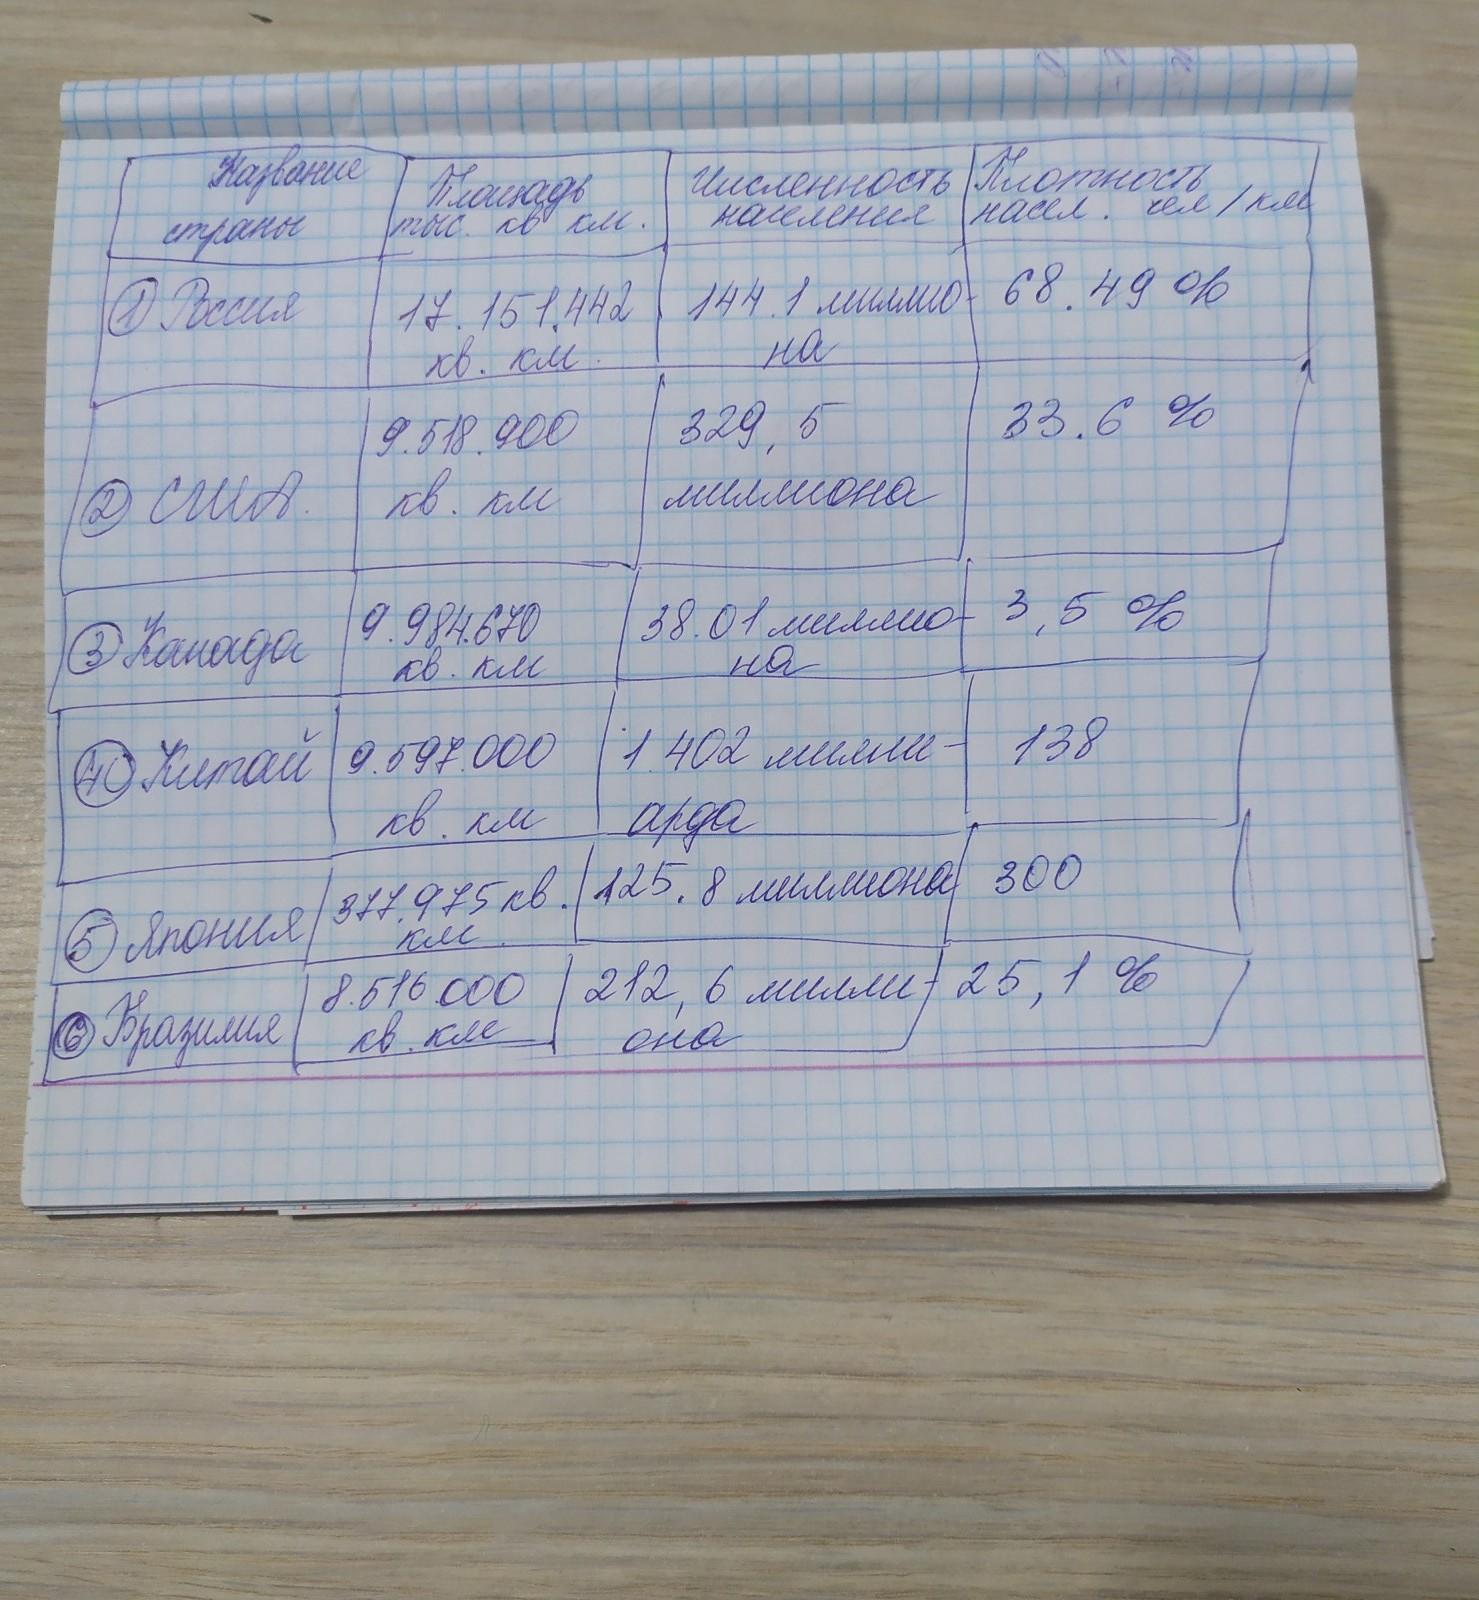 Название страны
Площадь тыс. кв км.
Численность населения
Плотность насел. чел/км
① Россия
17.151.442 кв. км.
144.1 миллио-
на
68.49 %
② США.
9.518.900 кв. км
329,5 миллиона
33.6 %
③ Канада
9.984.670 кв. км
38.01 миллио-
на
3,5 %
④ Китай
9.597.000 кв. км
1.402 милли-
арда
138
⑤ Япония
377.975 кв. км
125.8 миллиона
300
⑥ Бразилия
8.516.000 кв. км
212,6 милли-
она
25,1 %